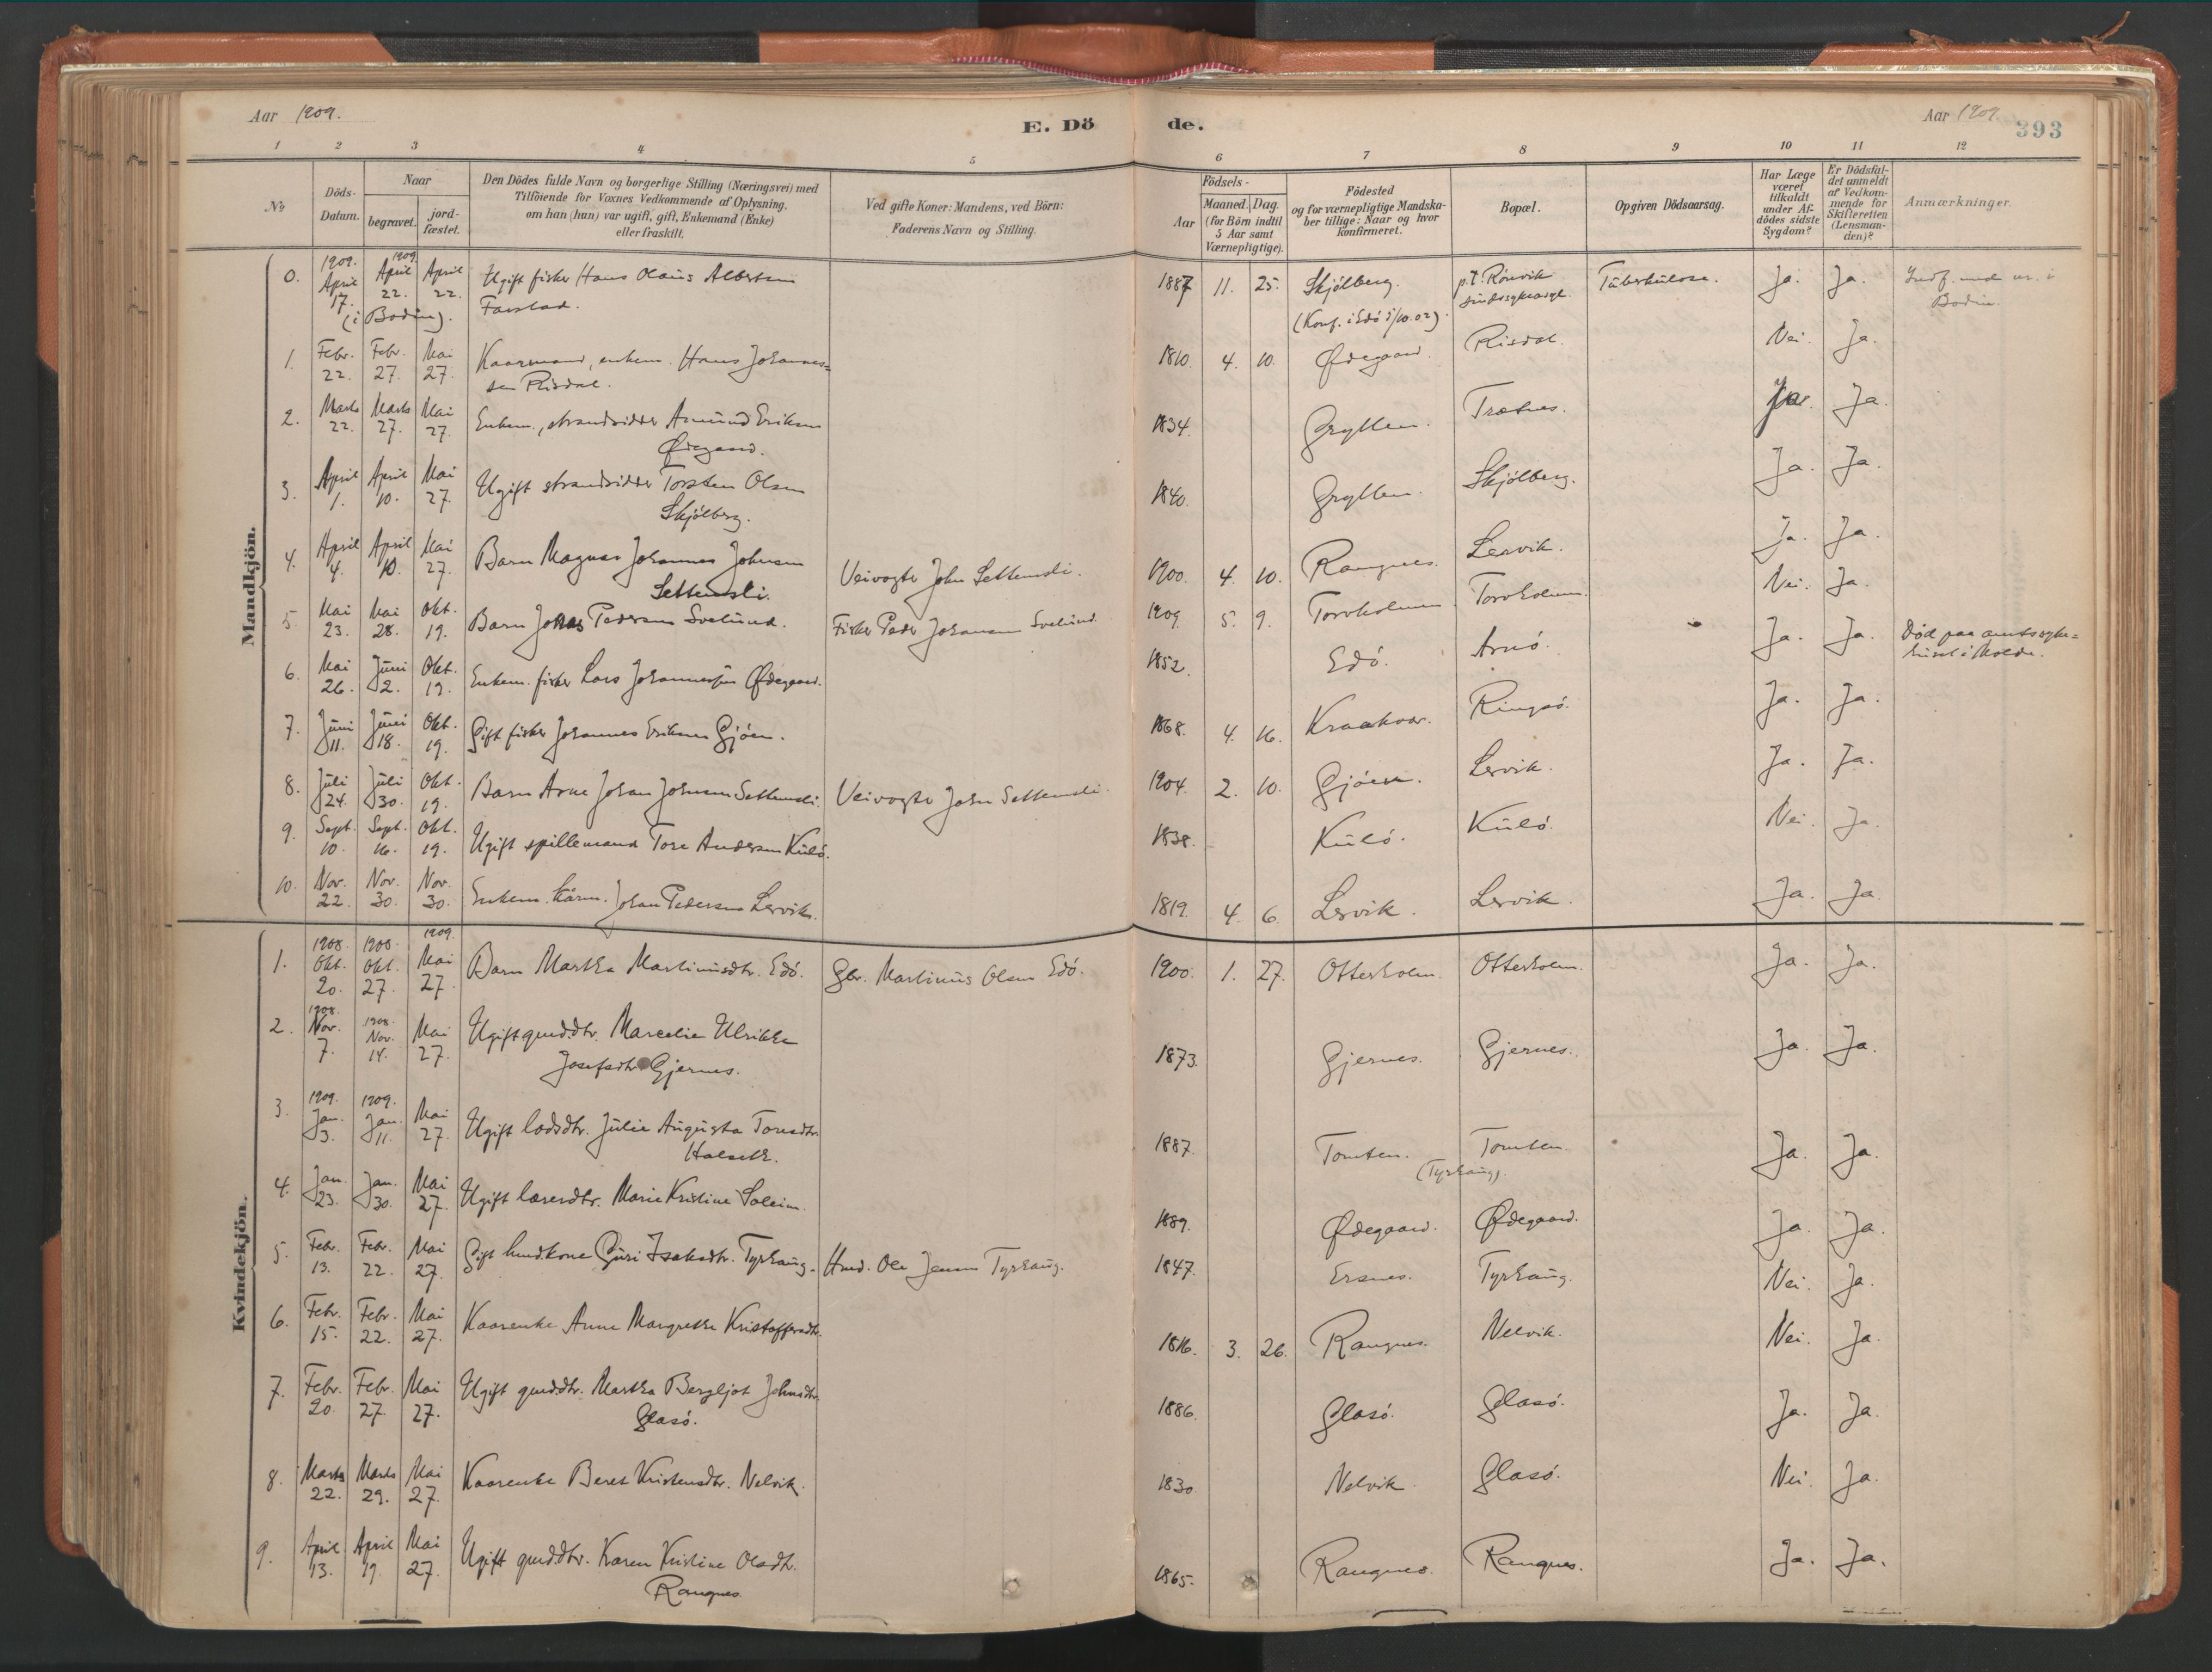 Aar 1909.
E. Dö
de.
Aar 1909.
393
1 2 3 4 5 6 7 8 9 10 11 12
№
Döds-
Datum.
Naar
begravet.
jord-
fæstet.
Den Dödes fulde Navn og borgerlige Stilling (Næringsvei) med
Tilföiende for Voxnes Vedkommende af Oplysning,
om han (hun) var ugift, gift, Enkemand (Enke)
eller fraskilt.
Ved gifte Koner: Mandens, ved Börn:
Faderens Navn og Stilling.
Födsels-
Aar
Maaned. Dag.
(for Börn indtil
5 Aar samt
Værnepligtige).
Födested
og for værnepligtige Mandska-
ber tillige: Naar og hvor
konfirmeret.
Bopæl.
Opgiven Dödsaarsag.
Har Læge
været
tilkaldt
under Af-
dödes sidste
Sygdom?
Er Dödsfal-
det anmeldt
af Vedkom-
mende for
Skifteretten
(Lensman-
den)?
Anmærkninger.
Mandkjön.
0. 1909. April 17. 1909. April 22. April 22. Ugift fisker Hans Olaus Albertsen 1887 11. 25. Skjölberg. p.t. Rönvik Tuberkulose. Ja. Ja.
(i Bodin). Farstad. (Konf. i Edö 5/10.02). sindssygeasyl. Bodin.
1. Febr. 22. Febr. 27. Mai 27. Kaarmand, enkem. Hans Johannes- 1810. 4. 10. Ødegaard. Risdal. Nei. Ja.
sen Risdal.
2. Marts 22. Marts 27. Mai 27. Enkem., strandsidder Amund Eriksen 1834. Gryllen. Trætnes. Ja. Ja.
Ødegaard.
3. April 1. April 10. Mai 27. Ugift strandsidder Torsten Olsen 1840. Gryllen. Skjölberg. Ja. Ja.
Skjölberg.
4. April 4. April 10. Mai 27. Barn Magnar Johannes Johnsen Veivogter John Settemsli. 1900. 4. 10. Rangnes. Lervik. Ja. Ja.
Settemsli.
5. Mai 23. Mai 28. Okt. 19. Barn Johas Pedersen Svelund. Fisker Peder Johansen Svelund. 1909. 5. 9. Torvholmen Torvholmen. Nei. Ja.
6. Mai 26. Juni 2. Okt. 19. Enkem. fisker Lars Johannessen Ødegaard. 1852. Edö. Arnö. Ja. Ja. Död paa amtssyke-
huset i Molde.
7. Juni 11. Juni 18. Okt. 19. Gift fisker Johannes Eriksen Gjöen. 1868. 4. 16. Kraakvar. Ringsö. Ja. Ja.
8. Juli 24. Juli 30. Okt. 19. Barn Arne Johan Johnsen Settemsli. Veivogter John Settemsli. 1904. 2. 10. Gjöen. Lervik. Ja. Ja.
9. Sept. 10. Sept. 16. Okt. 19. Ugift spillemand Tore Andersen Kulö. 1838. Kulö. Kulö. Nei. Ja.
10. Nov. 22. Nov. 30. Nov. 30. Enkem. kårm. Johan Pedersen Lervik. 1819. 4. 6. Lervik. Lervik. Ja. Ja.
Kvindekjön.
1. 1908. Okt. 20. 1908. Okt. 27. 1909. Mai 27. Barn Martha Martinusdtr. Edö. Gbr. Martinus Olsen Edö. 1900. 1. 27. Otterholm. Otterholm. Ja. Ja.
2. 1908. Nov. 7. 1908. Nov. 14. Mai 27. Ugift gmddtr. Marcelie Ulrikke 1873. Gjernes. Gjernes. Ja. Ja.
Josefsdtr Gjernes.
3. 1909. Jan. 3. 1909. Jan. 11. Mai 27. Ugift lodsdtr. Julie Augusta Toresdtr. 1887. Tomten. Tomten. Ja. Ja.
Halseth. (Tyrhaug).
4. Jan. 23. Jan. 30. Mai 27. Ugift lærerdtr. Marie Kristine Soleim. 1889. Ødegaard. Ødegaard. Ja. Ja.
5. Febr. 13. Febr. 22. Mai 27. Gift hmdkone Guri Isaksdtr. Tyrhaug. Hmd. Ole Jensen Tyrhaug. 1847. Ersnes. Tyrhaug. Nei. Ja.
6. Febr. 15. Febr. 22. Mai 27. Kaarenke Anne Margrethe Kristoffersdtr. 1816. 3. 26. Rangnes. Nelvik. Nei. Ja.
7. Febr. 20. Febr. 27. Mai 27. Ugift gmddtr. Martha Bergljot Johnsdtr. 1886. Glasö. Glasö. Ja. Ja.
Glasö.
8. Marts 22. Marts 29. Mai 27. Kaarenke Beret Kristensdtr. Nelvik. 1830 Nelvik. Glasö. Nei. Ja.
9. April 13. April 19. Mai 27. Ugift gmddtr. Karen Kristine Olsdtr. 1865. Rangnes. Rangnes. Ja. Ja.
Rangnes